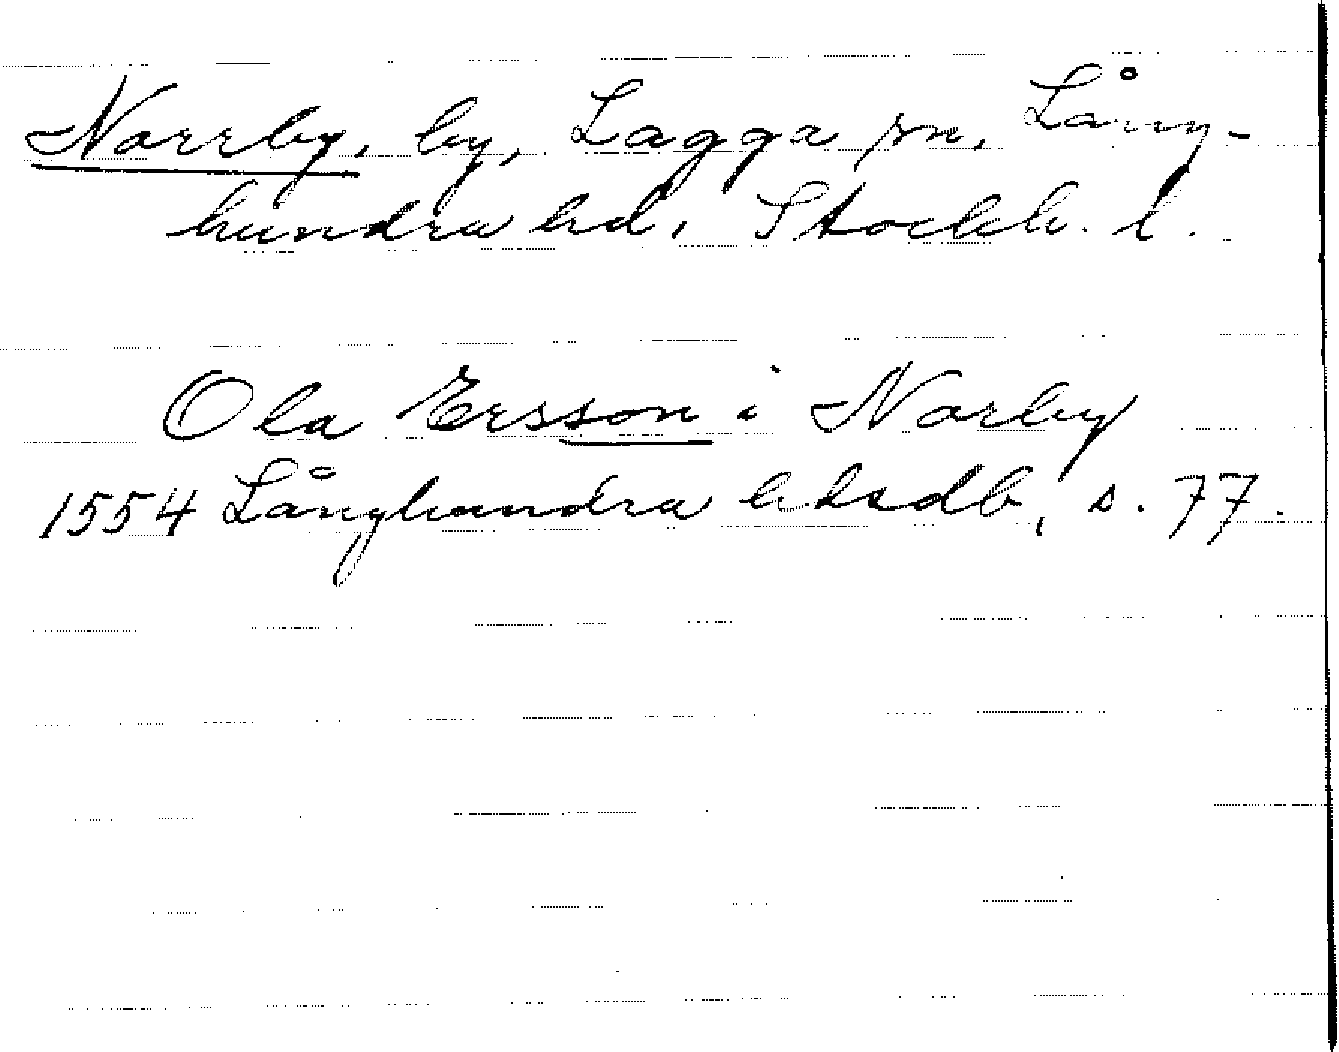 Norrby, by, Lagga sn, Lång-
hundra hd, Stockh. l.
Ola Ersson i Norby
1554 Långhundra htsdb, s. 77.